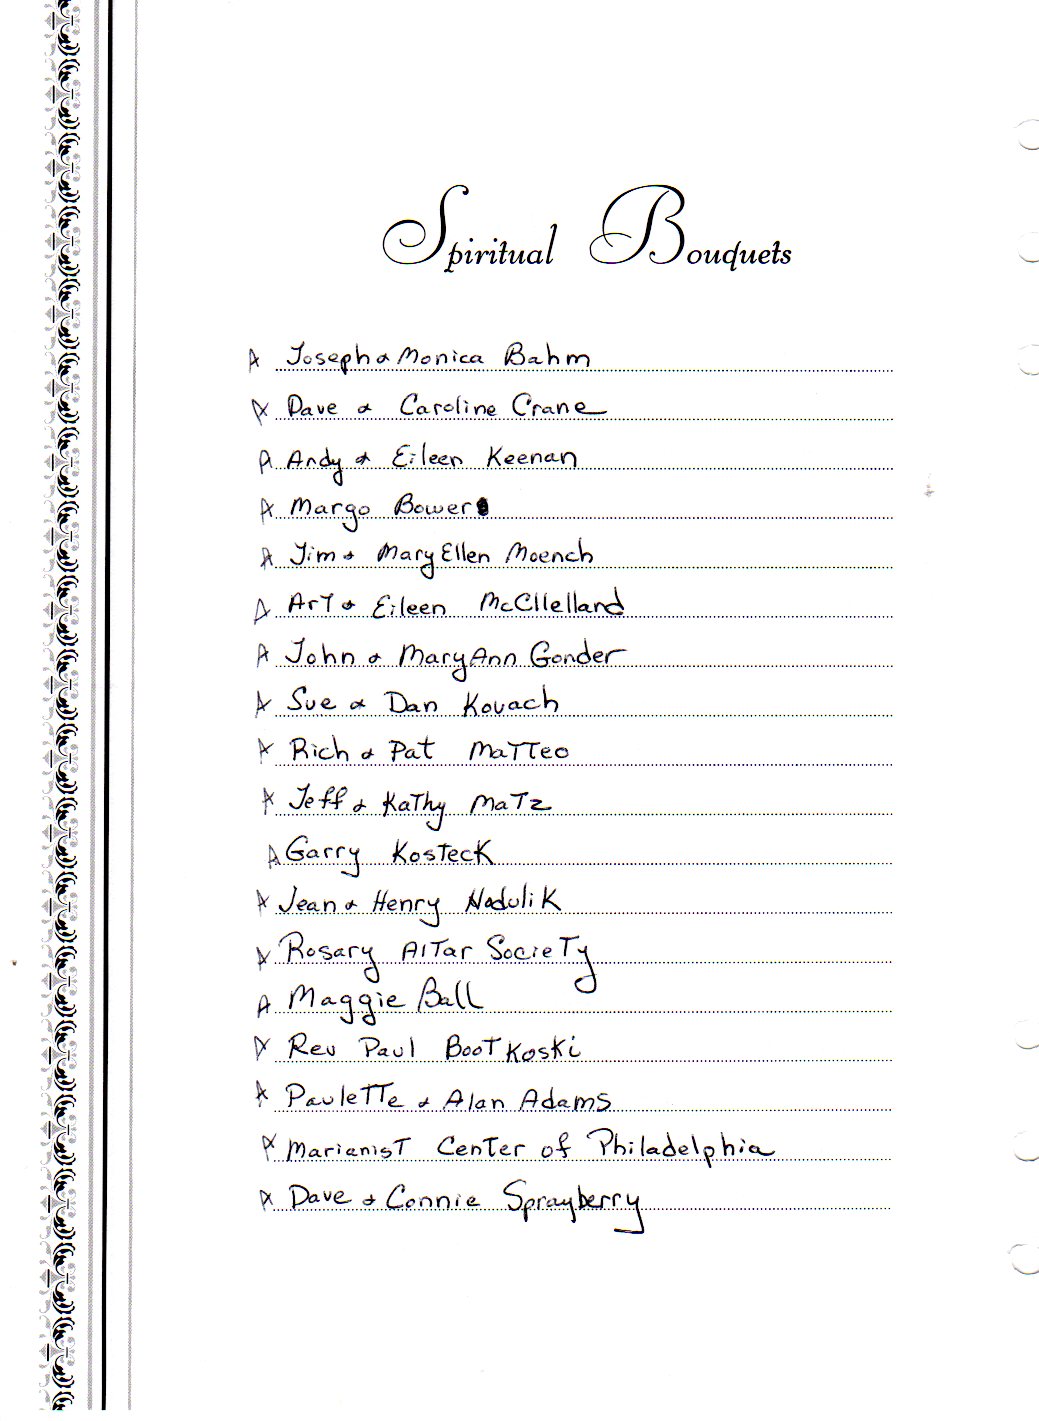 Spiritual Bouquets
A Joseph & Monica Bahm
A Dave & Caroline Crane
A Andy & Eileen Keenan
A Margo Bower
A Jim & Mary Ellen Moench
A Art & Eileen McCllelland
A John & MaryAnn Gonder
A Sue & Dan Kovach
A Rich & Pat Matteo
A Jeff & Kathy Matz
A Garry Kosteck
A Jean & Henry Nodulik
A Rosary Altar Society
A Maggie Ball
A Rev Paul Bootkoski
A Paulette & Alan Adams
A Marianist Center of Philadelphia
A Dave & Connie Sprayberry